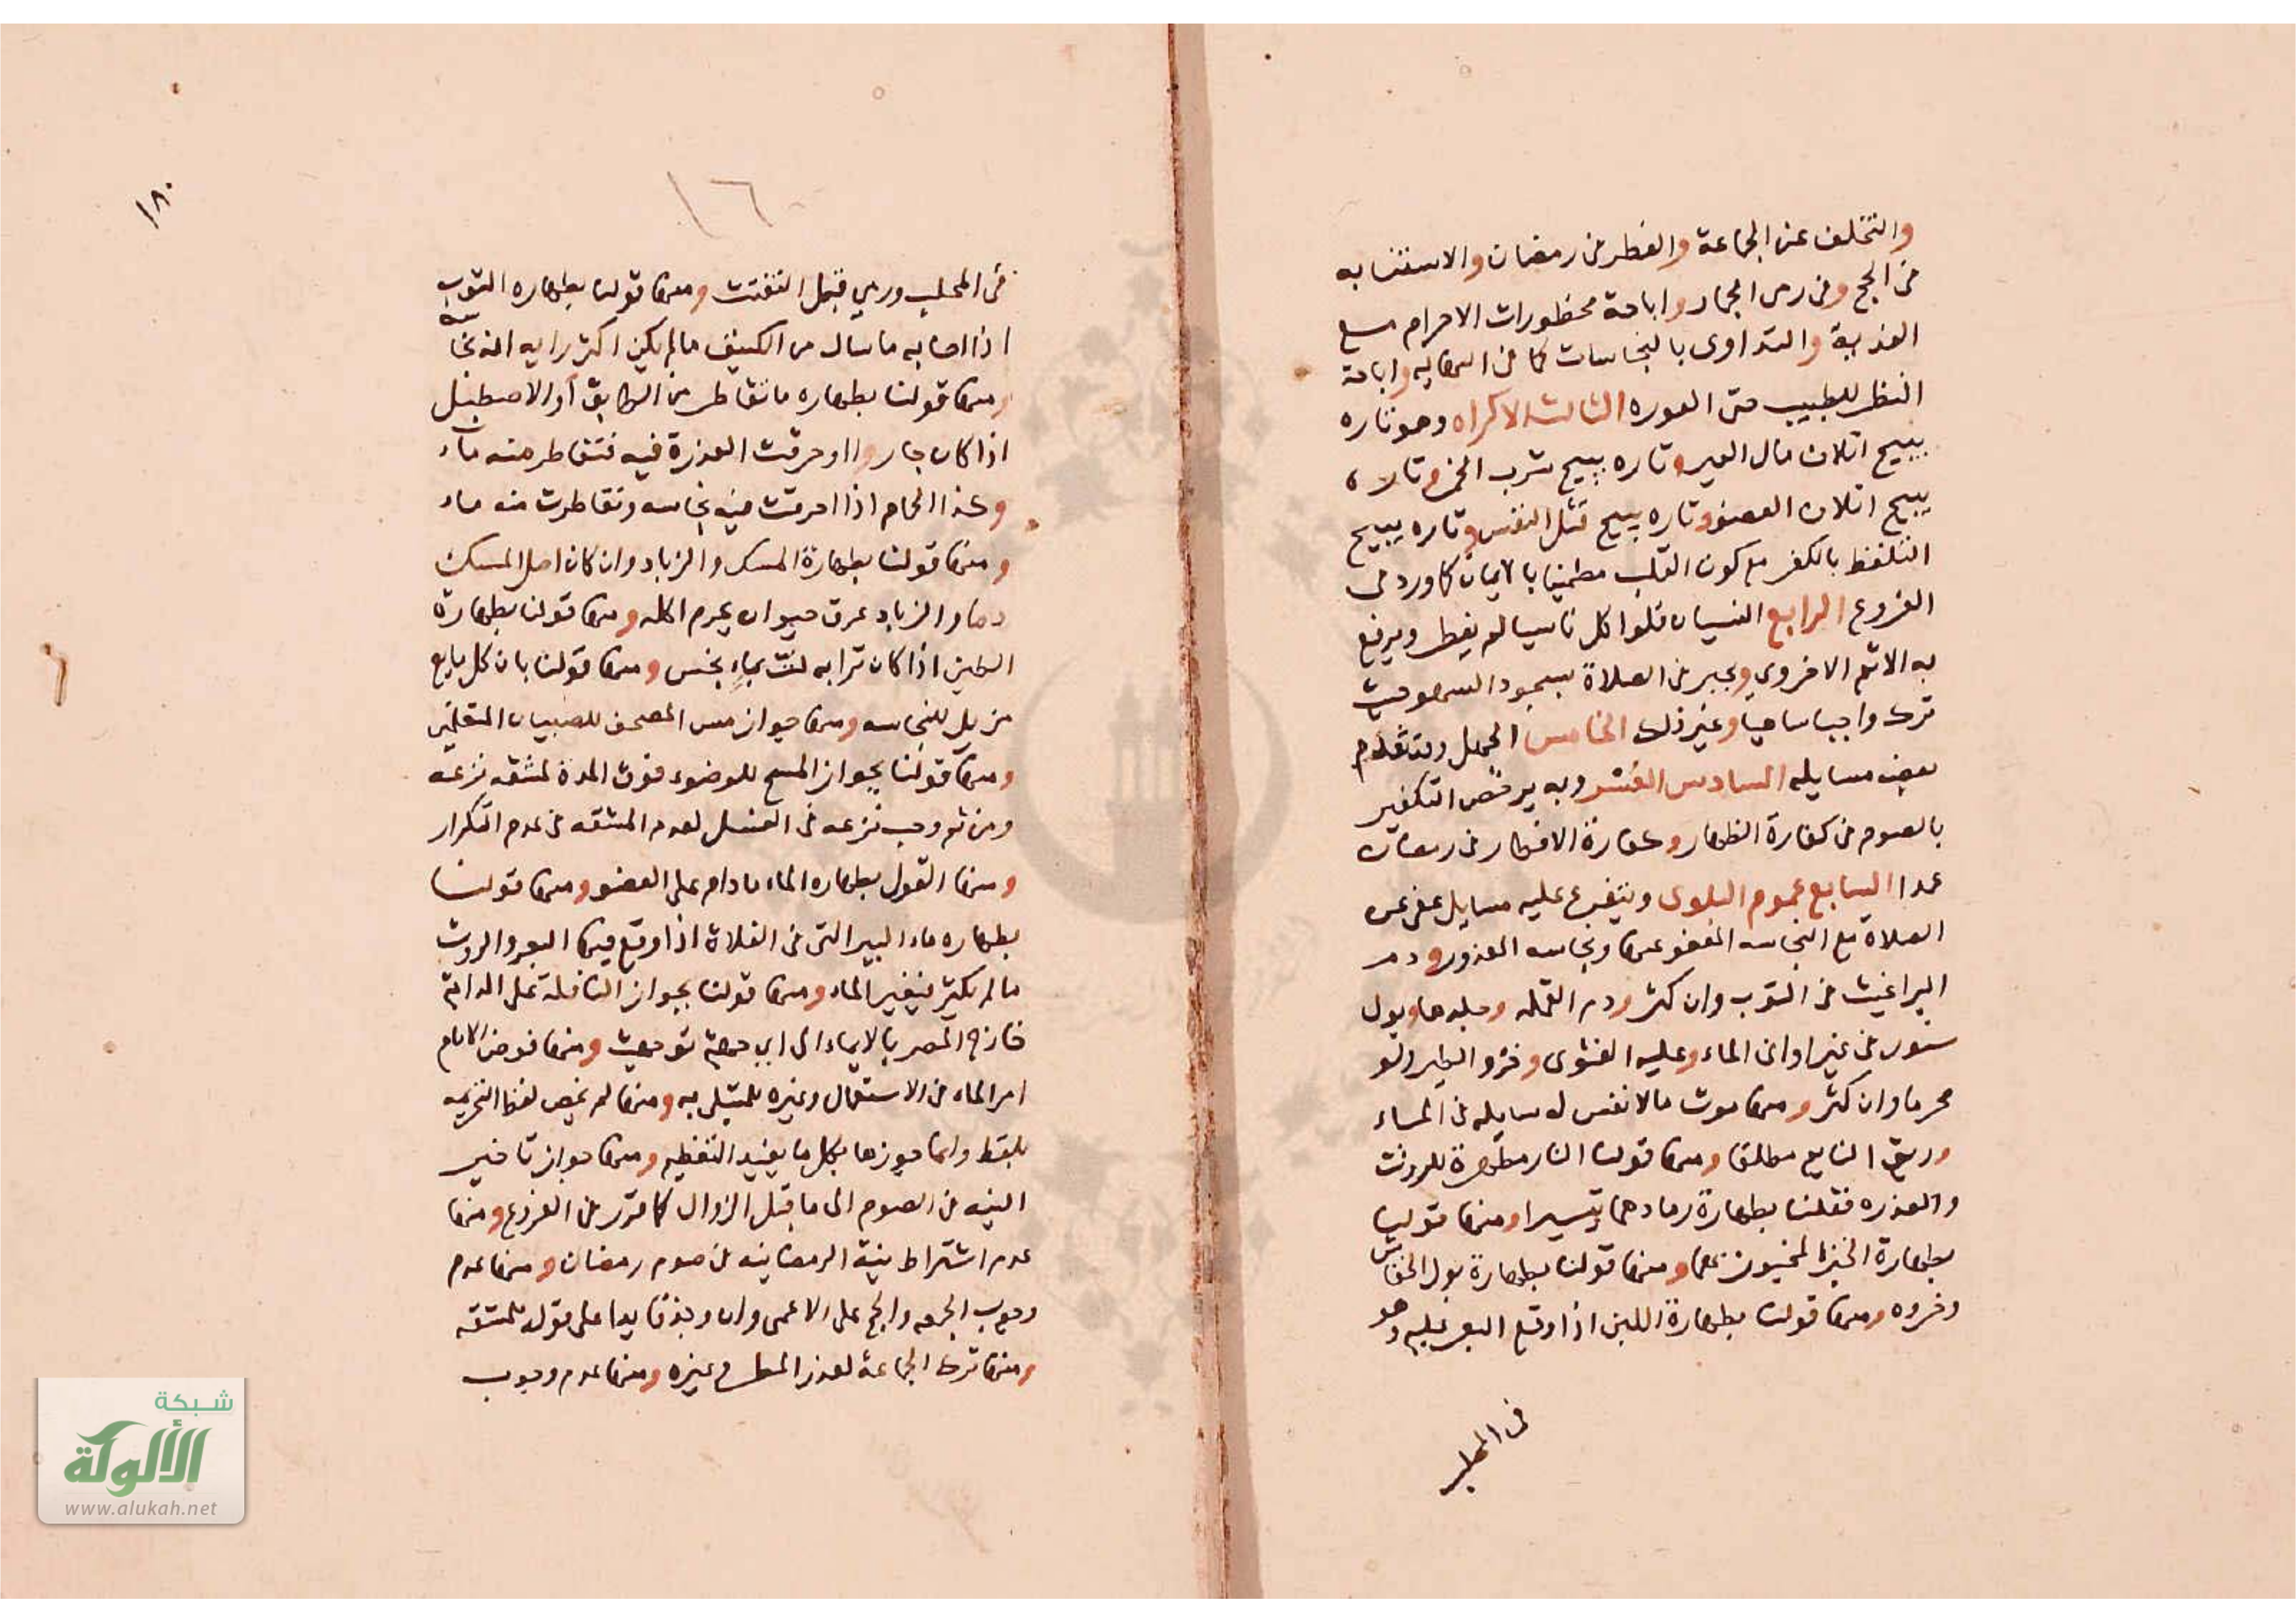 والتخلف عن الجماعة والفطر في رمضان والاستنابه
في الحج وفي رمى الجمار واباحة محظورات الاحرام مع
الفدية والتداوى بالنجاسات كما في النهايه واباحة
النظر للطبيب حتى العوره الثالث الاكراه وهو تاره
يبيح اتلاف مال الغير وتاره يبيح شرب الخمر وتاره
يبيح اتلاف العضو وتاره يبيح قتل النفس وتاره يبيح
التلفظ بالكفر مع كون القلب مطمينا بالايمان كما ورد في
الفروع الرابع النسيان فلو اكل ناسيا لم يفطر ويرفع
به الاثم الاخروي ويجبر في الصلاة بسجود السهو حيث
ترك واجبا ساهيا وغير ذلك الخامس الجهل وتتقدم
بعض مسايله السادس العسر وبه يرخص التكفير
بالصوم في كفارة الظهار وكفارة الافطار في رمضان
عمدا السابع عموم البلوى ويتفرع عليه مسايل عفى عن
الصلاة مع النجاسه المعفو عنها ونجاسه المعذور ودم
البراغيث في الثوب وان كثر ودم القمله وجلدها وبول
سنور في غير اواني الماء وعليه الفتوى وخرو الطير ولو
محرما وان كثر ومنها موت ما لا نفس له سايله في الماء
وريق النايم مطلقا ومنها قولنا النار مطهرة للروث
والعذره فقلنا بطهارة رمادهما تيسيرا ومنها قولنا
بطهارة الخبز المخبوز بهما ومنها قولنا بطهارة بول الخفاش
وخروه ومنها قولنا بطهارة اللبن اذا وقع البعر فيه وهو
في المحلب
١٨٠
١٦
في المحلب ورمي قبل التفتت ومنها قولنا بطهاره الثوب
اذا اصابه ما سال من الكنيف ما لم يكن اكثر رايه انه نجاسه
ومنها قولنا بطهاره ما تقاطر من الطابق او الاصطبل
اذا كان حارا واوحرقت العذرة فيه فتقاطر منه ماء
وكذا الحمام اذا احرقت فيه نجاسه وتقاطرت منه ماء
ومنها قولنا بطهارة المسك والزباد وان كان اصل المسك
دما والزباد عرق حيوان يحرم اكله ومنها قولنا بطهارة
الطين اذا كان ترابه لت بماء نجس ومنها قولنا بان كل مايع
مزيل للنجاسه ومنها جواز مس المصحف للصبيان المتعلمين
ومنها قولنا بجواز المسح للوضوء فوق المدة لمشقه نزعه
ومن ثم وجب نزعه في الغسل لعدم المشقه في عدم التكرار
ومنها القول بطهاره الماء ما دام على العضو ومنها قولنا
بطهاره ماء البير التى في الفلاة اذا وقع فيها البعر والروث
ما لم يكثر فيغير الماء ومنها قولنا بجواز النافلة على الدابة
خارج المصر بالايماء الى اي جهة توجهت ومنها فوض الامام
امر الماء في الاستعمال وغيره للمبتلى به ومنها لم نخص لفظ التحريمه
بلفظ وانما جوزها بكل ما يفيد التعظيم ومنها جواز تاخير
النيه في الصوم الى ما قبل الزوال كما قرر في الفروع ومنها
عدم اشتراط نية الرمضانيه في صوم رمضان ومنها عدم
وجوب الجمعه والحج على الاعمى وان وجد قايدا على قول للمشقه
ومنها ترك الجماعة لعذر المطر وغيره ومنها عدم وجوب
شبكة
الألوكة
www.alukah.net